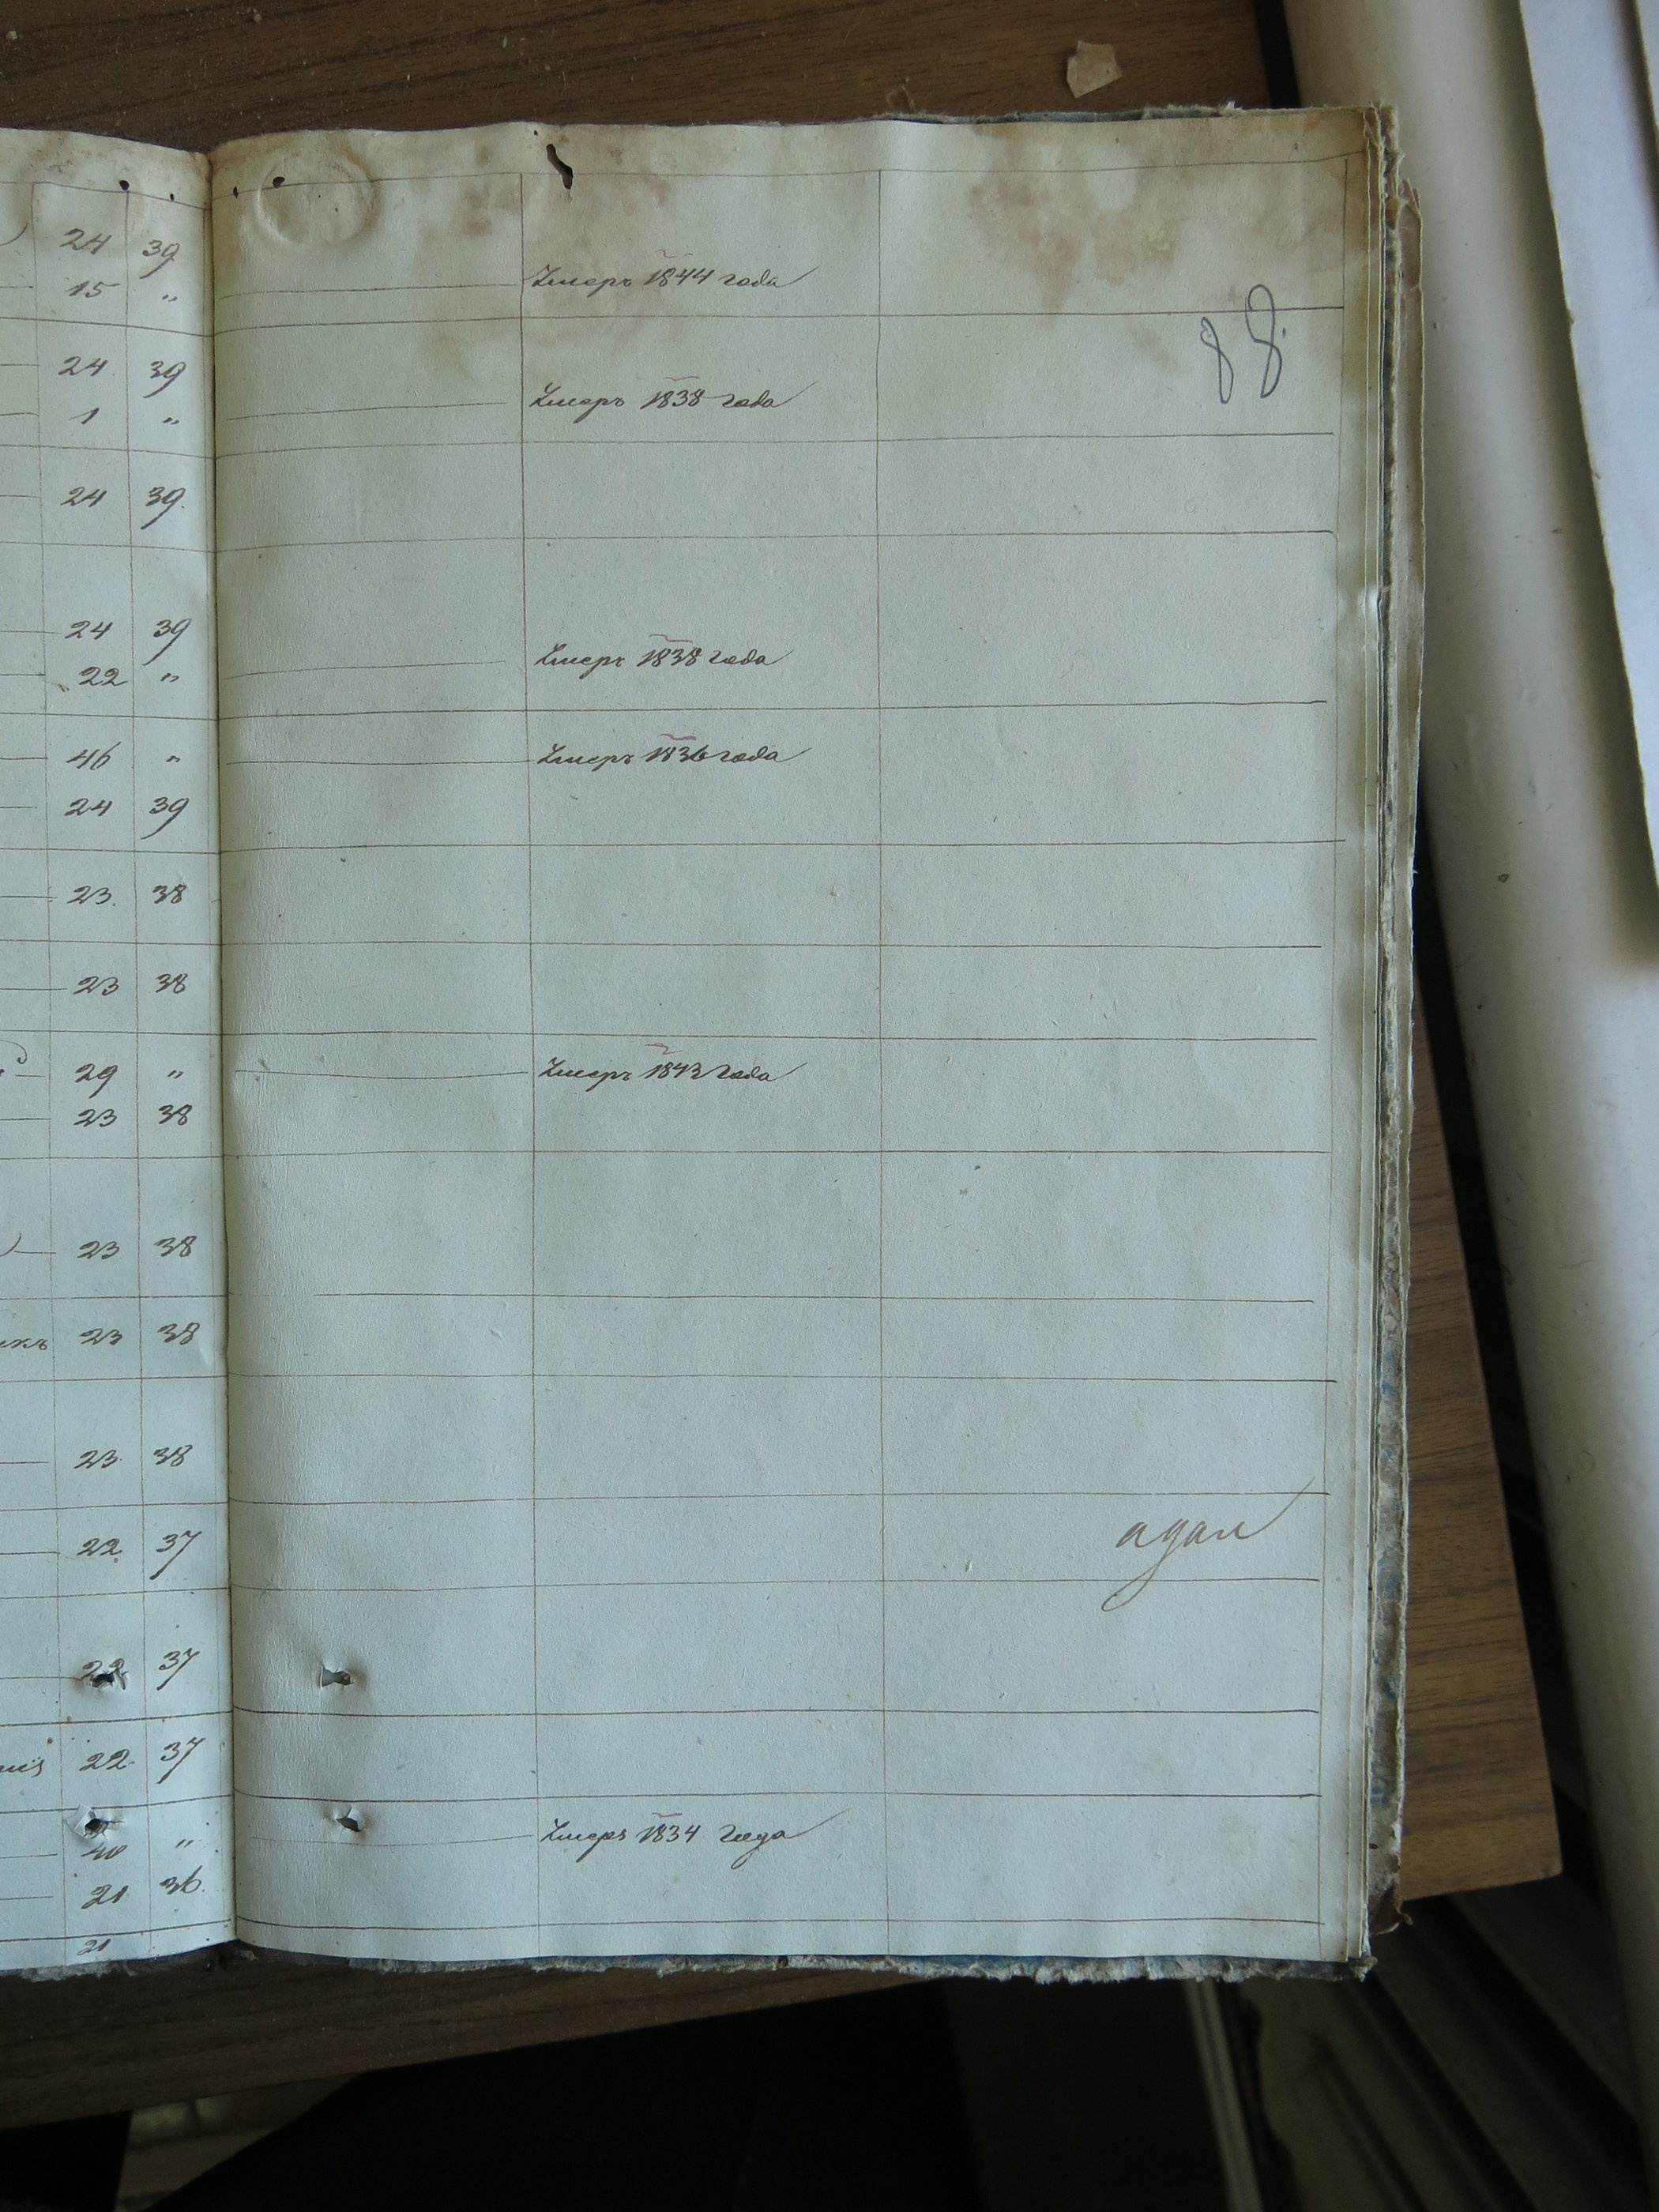 24 39
15 „ Умеръ 1844 года
88
24. 39
1 „ Умеръ 1838 года
24 39.
24 39
22 „ Умеръ 1838 года
46 „ Умеръ 1836 года
24 39
23. 38
23 38
29 „ Умеръ 1843 года
23 38
23 38
23 38
23. 38
22. 37
22 37
22. 37
„ Умеръ 1834 года
21 36.
21